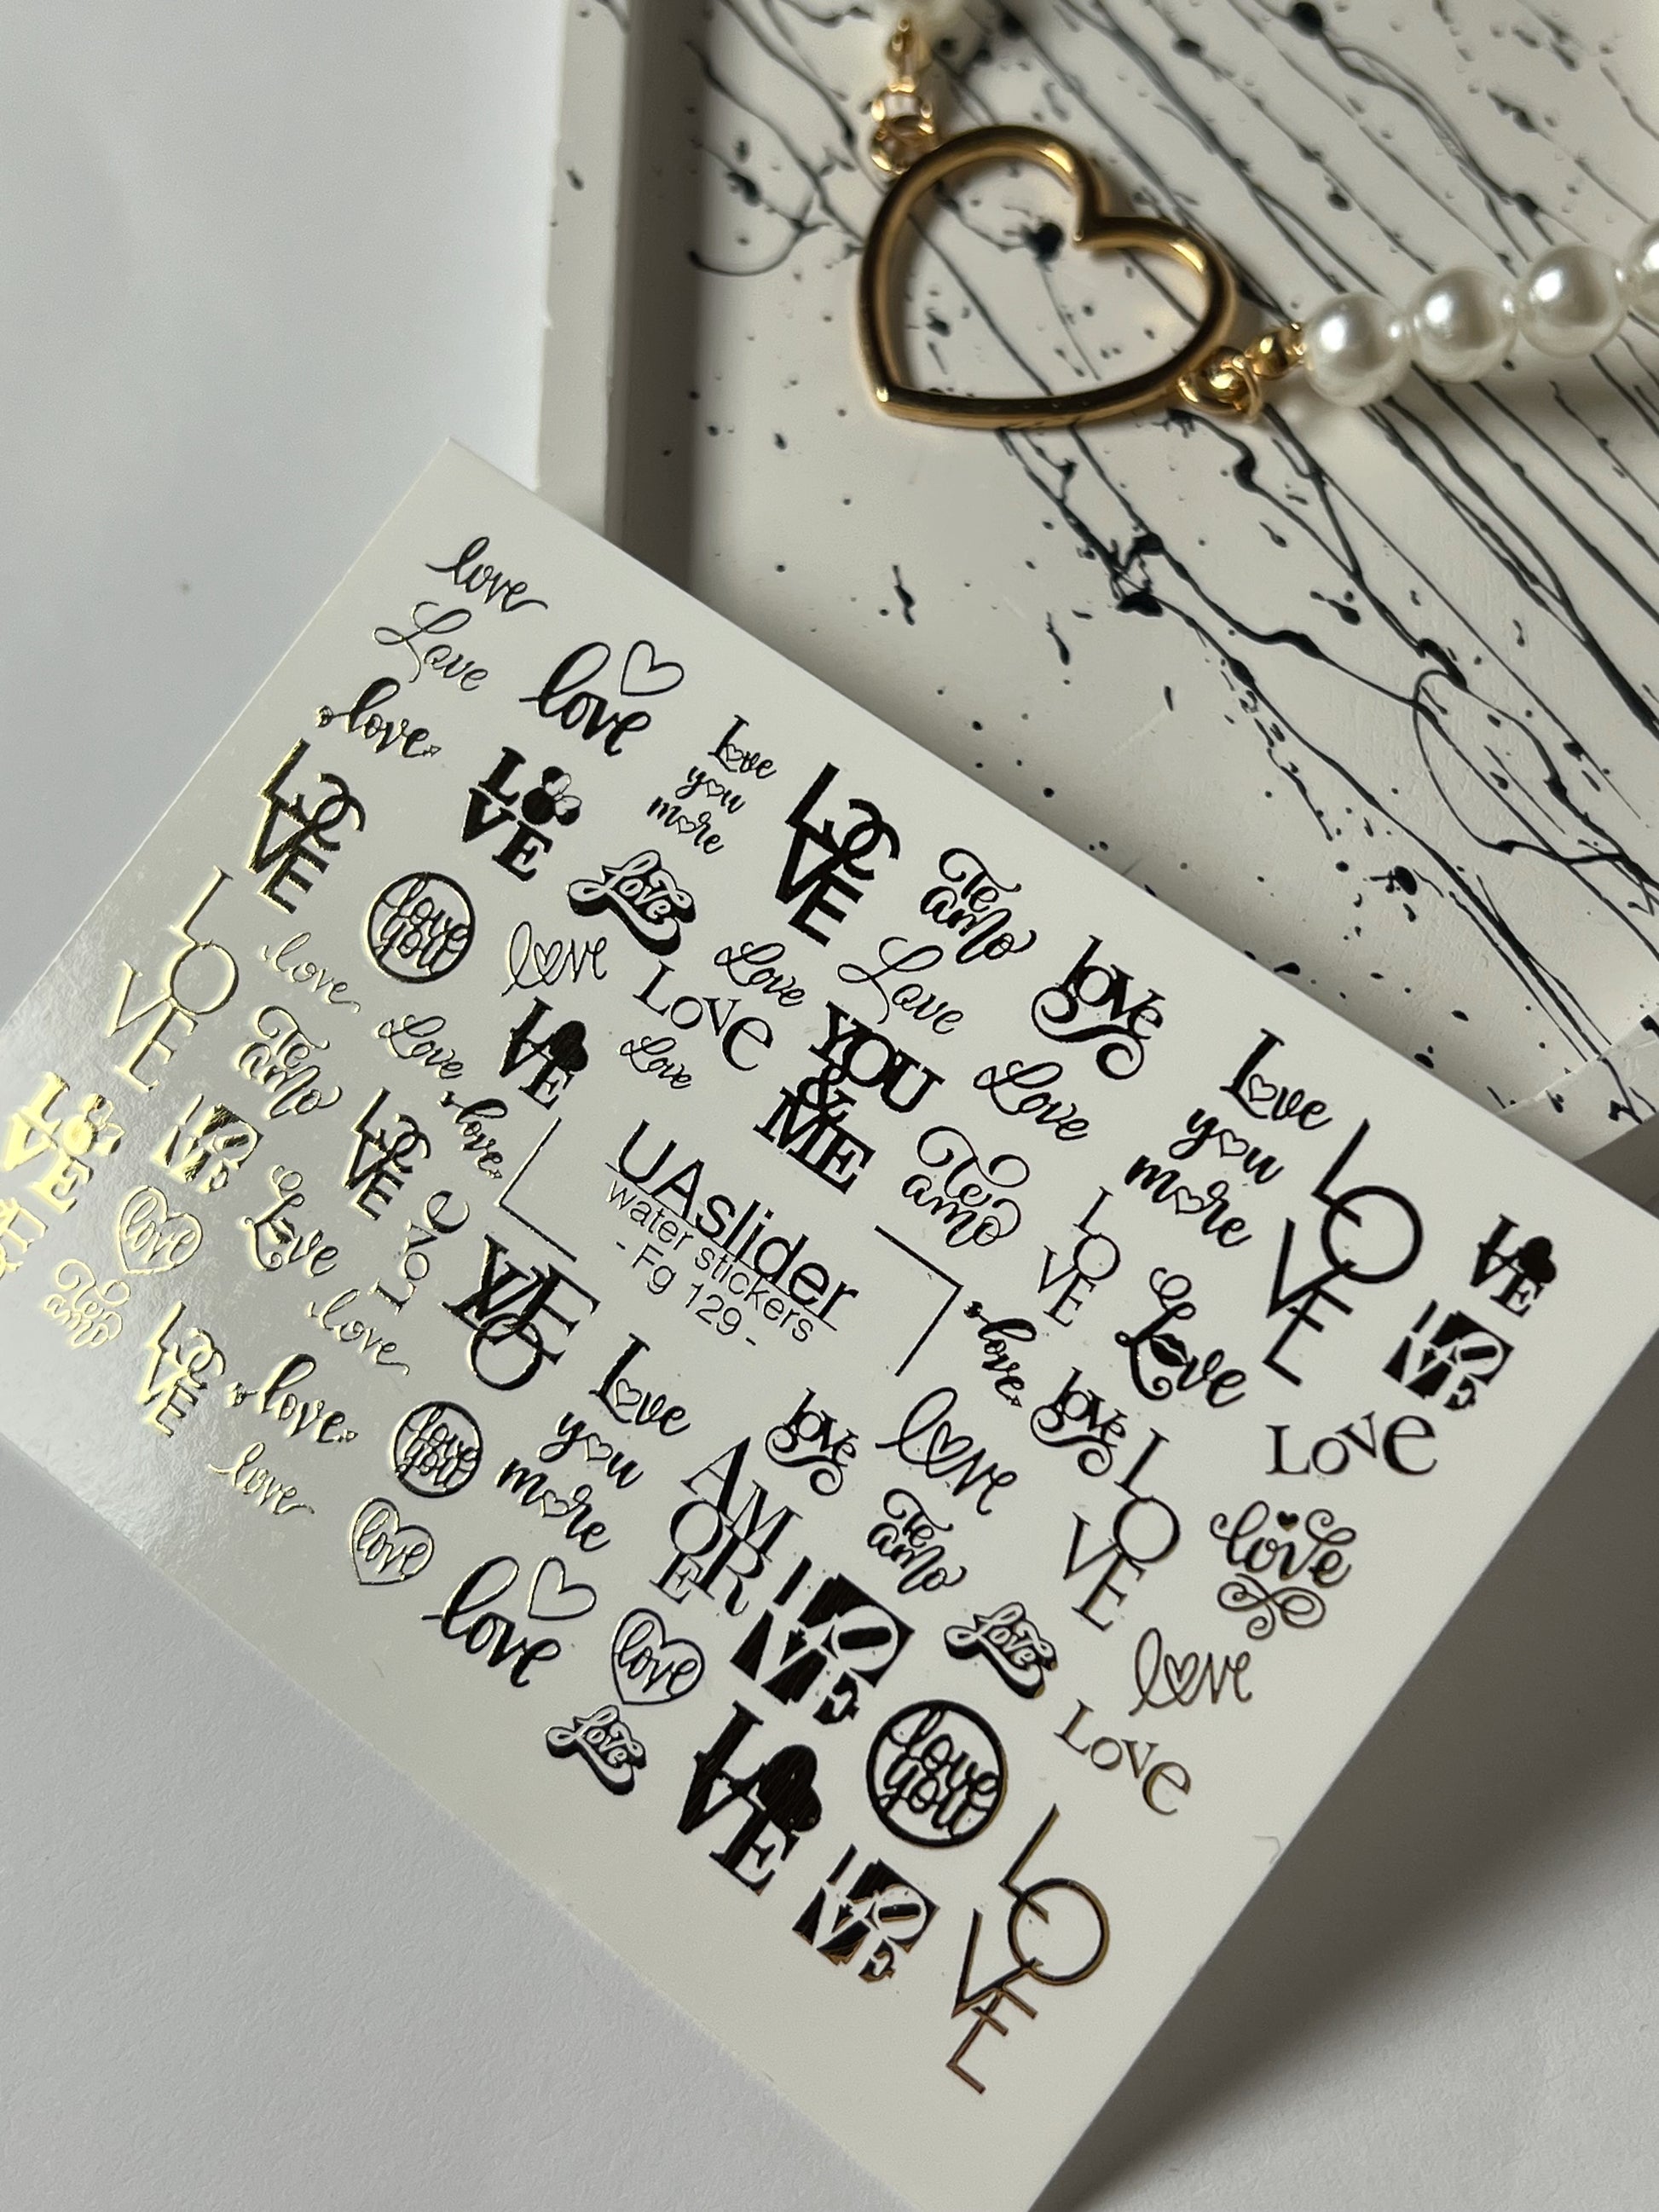 love
Love
love
love
LOVE
LOVE
Love
you
more
LOVE
Te
amo
love
you
love
love
love
LOVE
Love
Love
love
LOVE
love
Love
LOVE
Love
YOU
&
ME
Love
Love
you
more
LOVE
LOVE
Te
amo
LOVE
love
UAslider
water stickers
- Fg 129 -
Te
amo
LOVE
Love
LOVE
LOVE
LOVE
love
Love
love
LOVE
LOVE
Love
you
more
love
love
love
love
LOVE
LOVE
love
Te
amo
LOVE
love
love
love
you
AM
OR
E
Te
amo
love
love
love
love
love
love
LOVE
LOVE
love
LOVE
love
you
LOVE
LOVE